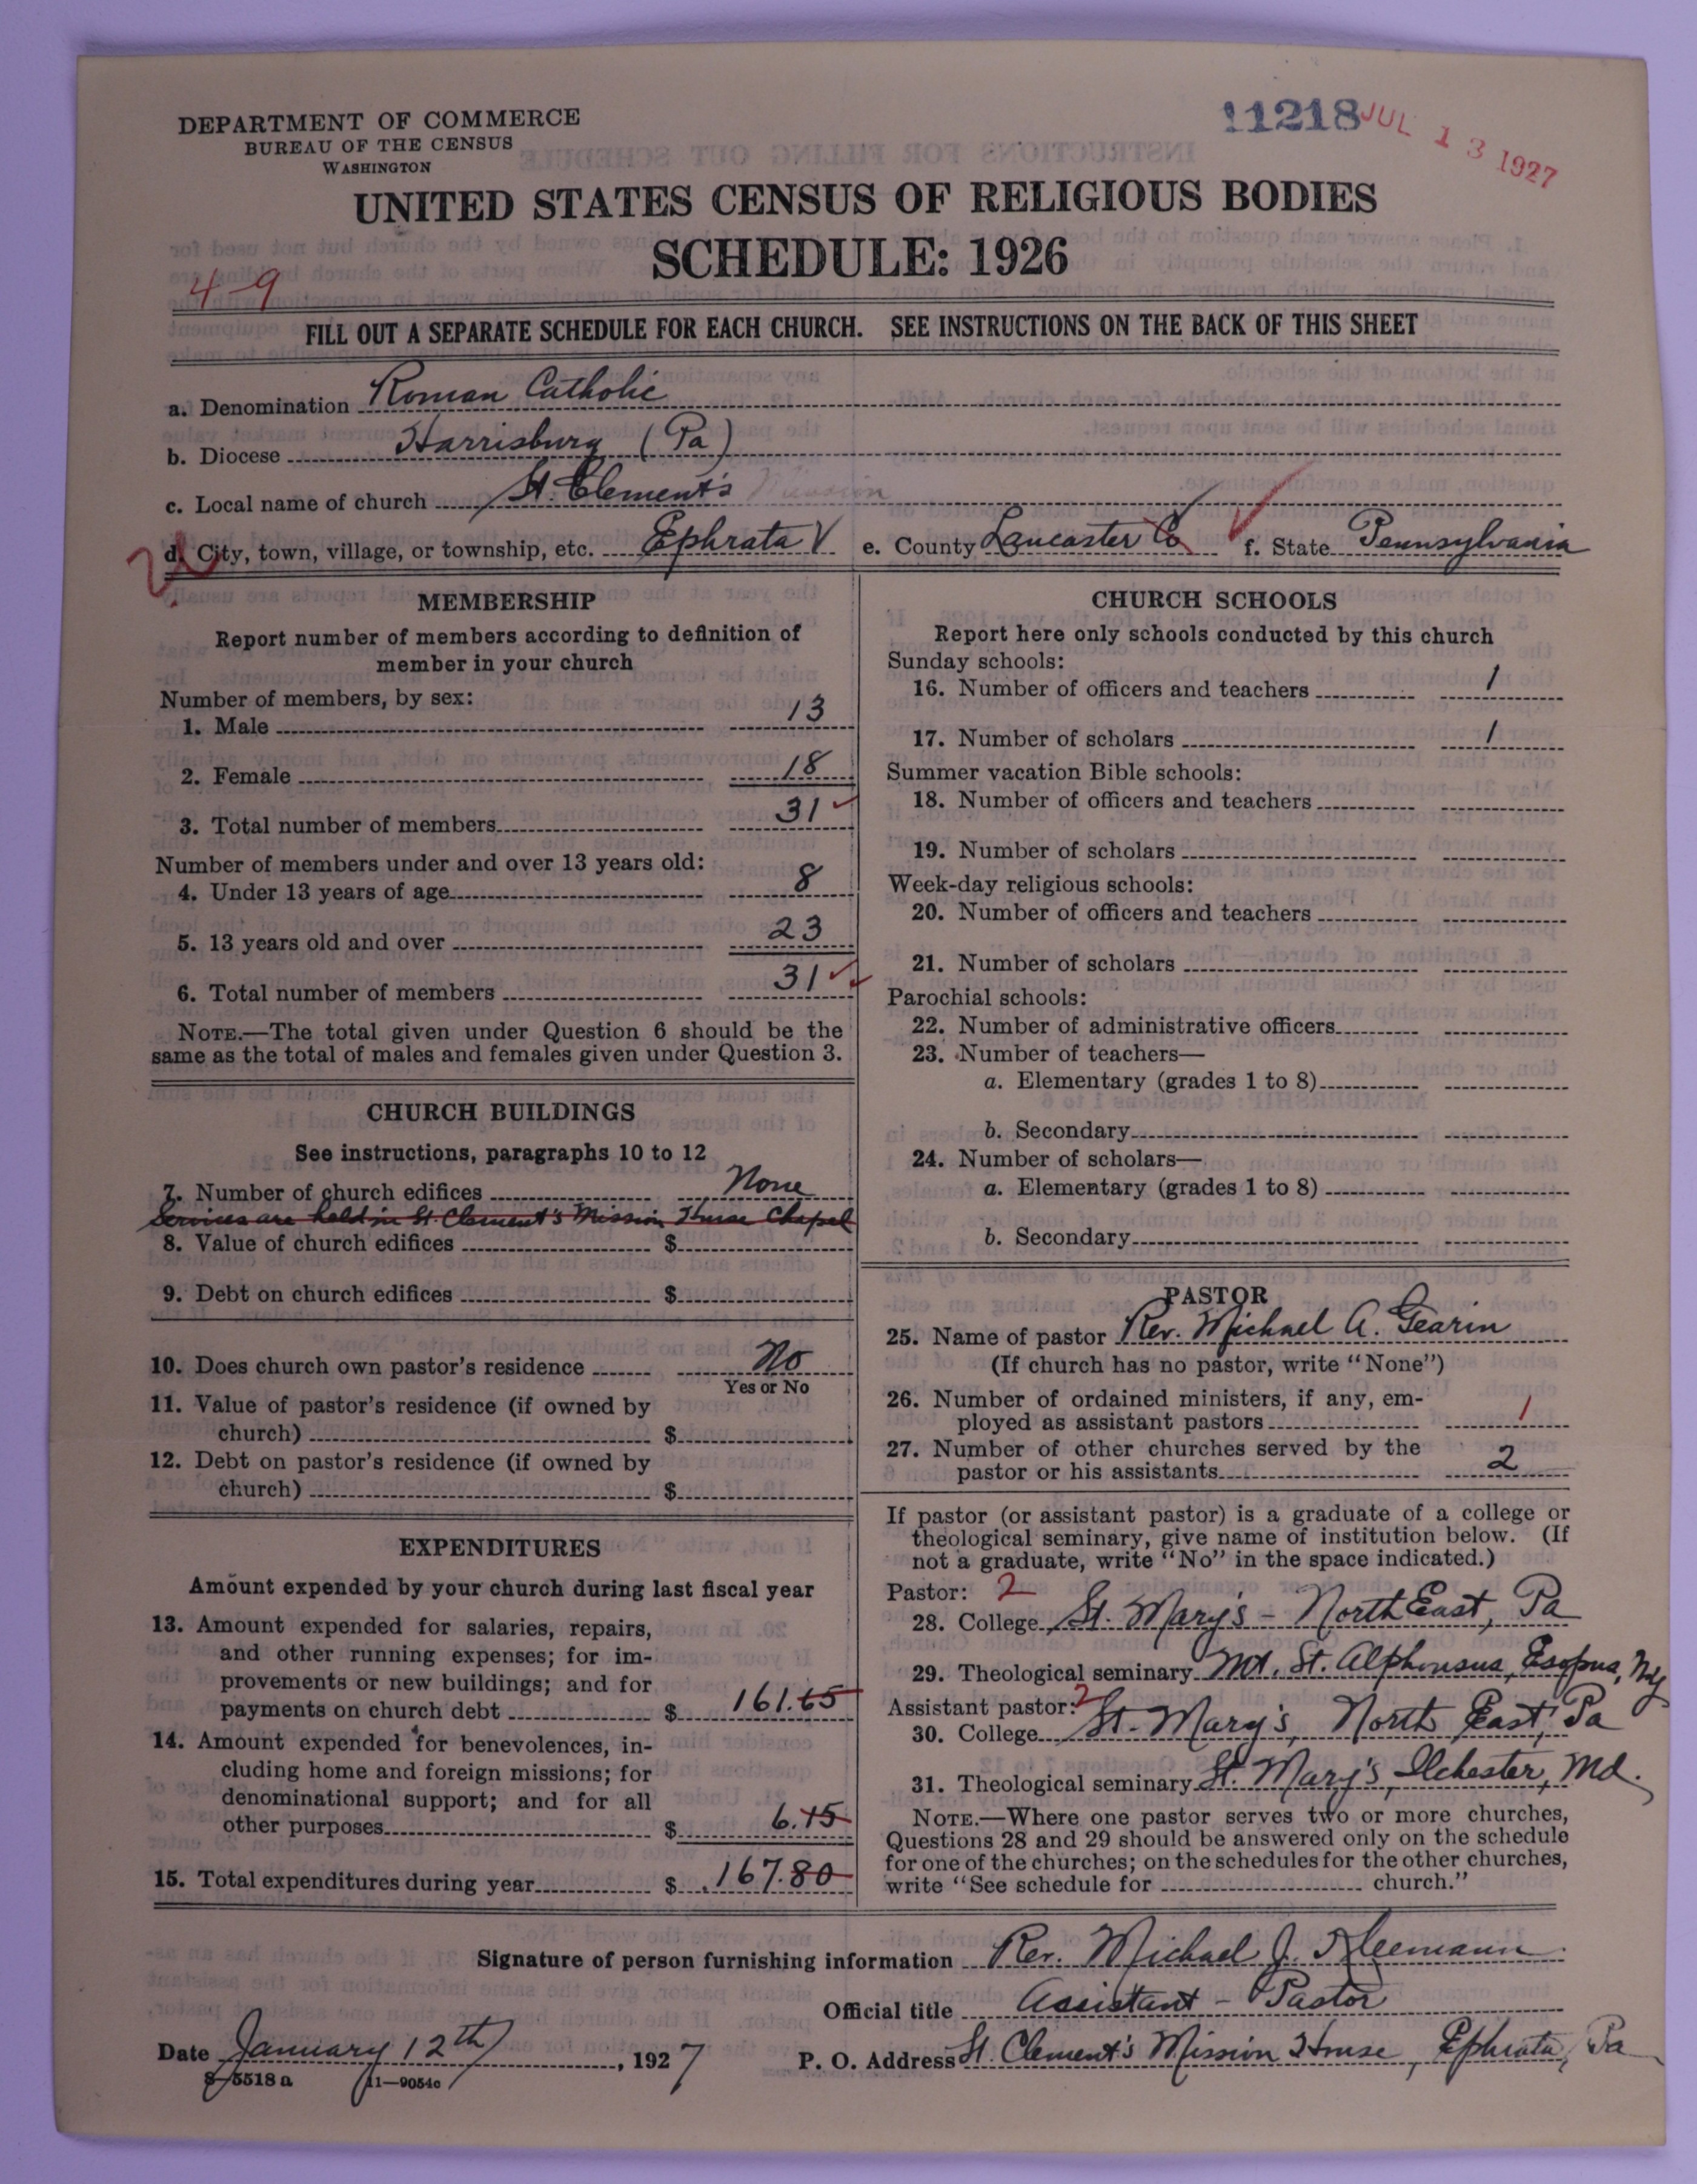 DEPARTMENT OF COMMERCE
BUREAU OF THE CENSUS
WASHINGTON
11218
JUL 13 1927
UNITED STATES CENSUS OF RELIGIOUS BODIES
SCHEDULE: 1926
4-9
FILL OUT A SEPARATE SCHEDULE FOR EACH CHURCH. SEE INSTRUCTIONS ON THE BACK OF THIS SHEET
a. Denomination Roman Catholic
b. Diocese Harrisburg (Pa)
c. Local name of church St. Clement's Mission
d. City, town, village, or township, etc. Ephrata e. County Lancaster Co f. State Pennsylvania
MEMBERSHIP
Report number of members according to definition of
member in your church
Number of members, by sex:
1. Male 13
2. Female 18
3. Total number of members 31
Number of members under and over 13 years old:
4. Under 13 years of age 8
5. 13 years old and over 23
6. Total number of members 31
NOTE.—The total given under Question 6 should be the
same as the total of males and females given under Question 3.
CHURCH BUILDINGS
See instructions, paragraphs 10 to 12
7. Number of church edifices None
Services are held in St. Clement's Mission House Chapel
8. Value of church edifices $
9. Debt on church edifices $
10. Does church own pastor's residence No
Yes or No
11. Value of pastor's residence (if owned by
church) $
12. Debt on pastor's residence (if owned by
church) $
EXPENDITURES
Amount expended by your church during last fiscal year
13. Amount expended for salaries, repairs,
and other running expenses; for im-
provements or new buildings; and for
payments on church debt $ 161.65
14. Amount expended for benevolences, in-
cluding home and foreign missions; for
denominational support; and for all
other purposes $ 6.15
15. Total expenditures during year $ 167.80
CHURCH SCHOOLS
Report here only schools conducted by this church
Sunday schools:
16. Number of officers and teachers 1
17. Number of scholars 1
Summer vacation Bible schools:
18. Number of officers and teachers
19. Number of scholars
Week-day religious schools:
20. Number of officers and teachers
21. Number of scholars
Parochial schools:
22. Number of administrative officers
23. Number of teachers—
a. Elementary (grades 1 to 8)
b. Secondary
24. Number of scholars—
a. Elementary (grades 1 to 8)
b. Secondary
PASTOR
25. Name of pastor Rev. Michael A. Gearin
(If church has no pastor, write "None")
26. Number of ordained ministers, if any, em-
ployed as assistant pastors 1
27. Number of other churches served by the
pastor or his assistants 2
If pastor (or assistant pastor) is a graduate of a college or
theological seminary, give name of institution below. (If
not a graduate, write "No" in the space indicated.)
Pastor: 2
28. College St. Mary's - North East, Pa
29. Theological seminary Mt. St. Alphonsus, Esopus, NY
Assistant pastor: 2
30. College St. Mary's, North East, Pa
31. Theological seminary St. Mary's, Ilchester, Md.
NOTE.—Where one pastor serves two or more churches,
Questions 28 and 29 should be answered only on the schedule
for one of the churches; on the schedules for the other churches,
write "See schedule for church."
Signature of person furnishing information Rev. Michael J. Kleemann
Official title Assistant - Pastor
Date January 12th, 1927 P. O. Address St. Clement's Mission House, Ephrata, Pa
8-5518 a 11-9054c